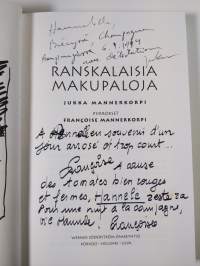 Hannele,
6.9.1994
RANSKALAISIA
MAKUPALOJA
JUKKA MANNERKORPI
PIIRROKSET
FRANÇOISE MANNERKORPI
A Hannele en souvenir d'un
jour arrosé et trop court...
Françoise A cause
des tomates bien rouges
et fermes, Hannele resta
pour une nuit à la campagne,
vie Hannele! Françoise
WERNER SÖDERSTRÖM OSAKEYHTIÖ
PORVOO - HELSINKI - JUVA